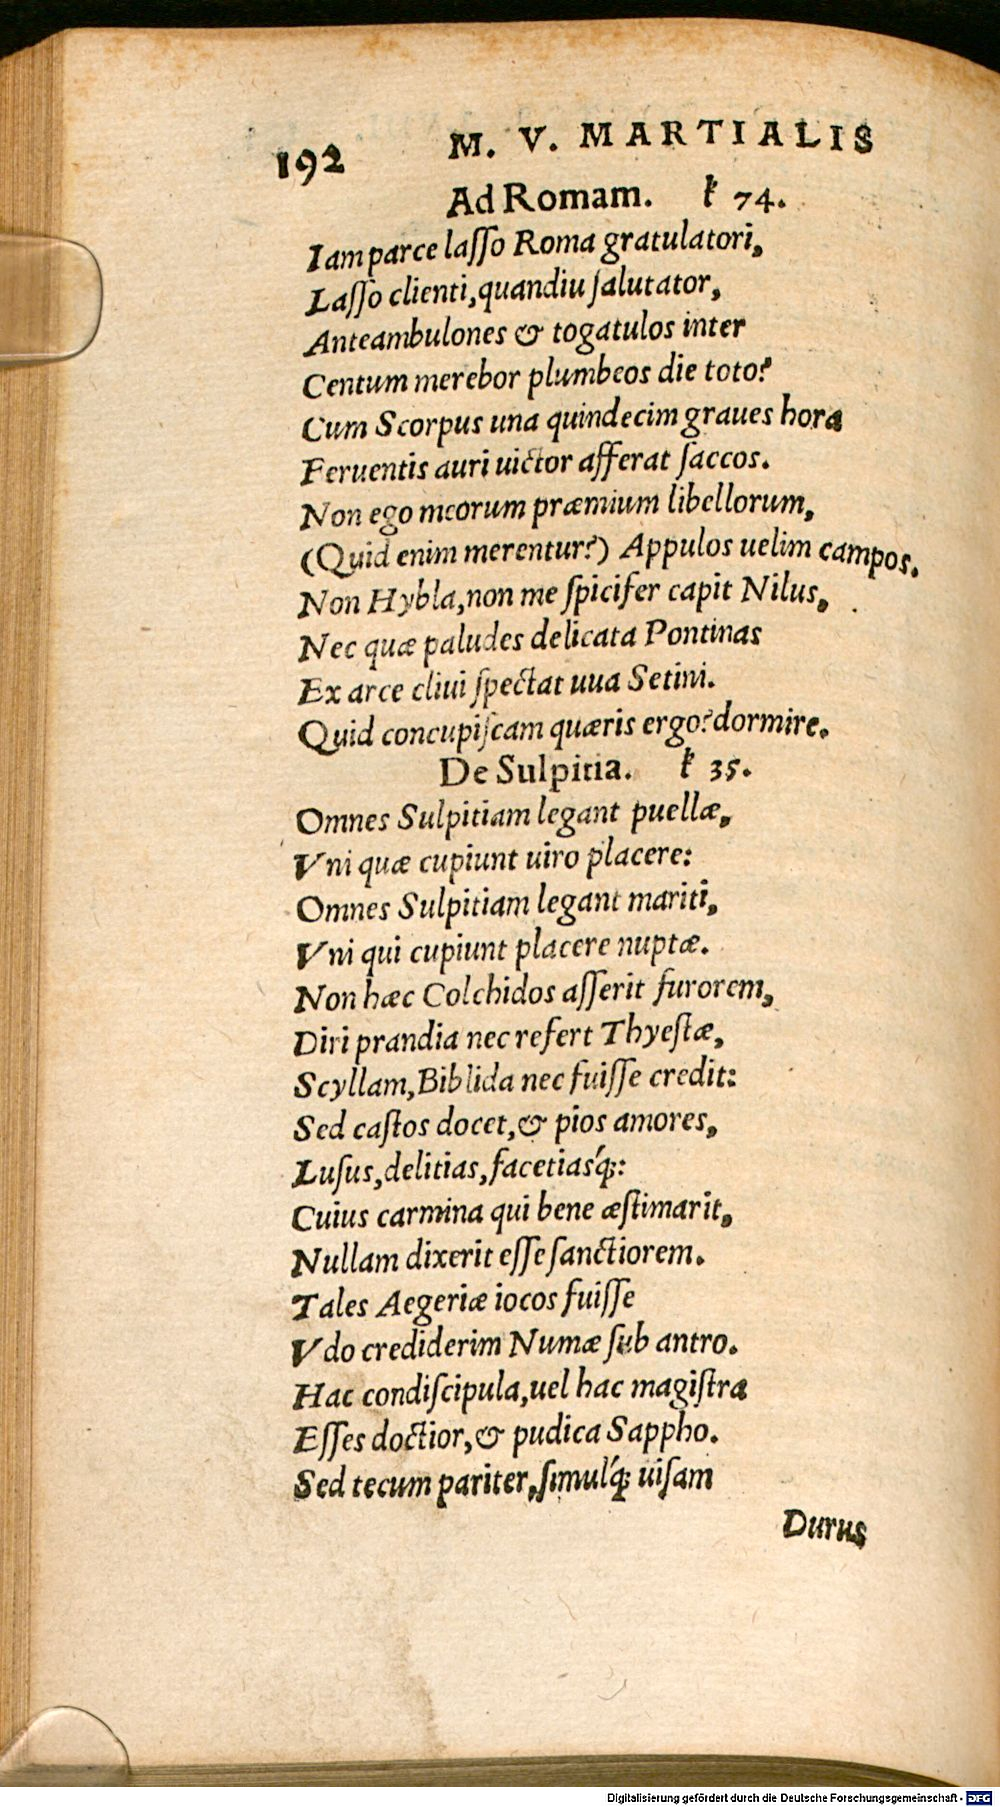 192 M. V. MARTIALIS
Ad Romam. k 74.
Iam parce lasso Roma gratulatori,
Lasso clienti, quandiu salutator,
Anteambulones & togatulos inter
Centum merebor plumbeos die toto?
Cum Scorpus una quindecim graues hora
Feruentis auri uictor afferat saccos.
Non ego meorum præmium libellorum,
(Quid enim merentur?) Appulos uelim campos.
Non Hybla, non me spicifer capit Nilus,
Nec quæ paludes delicata Pontinas
Ex arce cliui spectat uua Setini.
Quid concupiscam quæris ergo? dormire.
De Sulpitia. k 35.
Omnes Sulpitiam legant puellæ,
Vni quæ cupiunt uiro placere:
Omnes Sulpitiam legant mariti,
Vni qui cupiunt placere nuptæ.
Non hæc Colchidos asserit furorem,
Diri prandia nec refert Thyestæ,
Scyllam, Biblida nec fuisse credit:
Sed castos docet, & pios amores,
Lusus, delitias, facetiasq́;:
Cuius carmina qui bene æstimarit,
Nullam dixerit esse sanctiorem.
Tales Aegeriæ iocos fuisse
Vdo crediderim Numæ sub antro.
Hac condiscipula, uel hac magistra
Esses doctior, & pudica Sappho.
Sed tecum pariter, simulq́; uisam
Durus
Digitalisierung gefördert durch die Deutsche Forschungsgemeinschaft - DFG